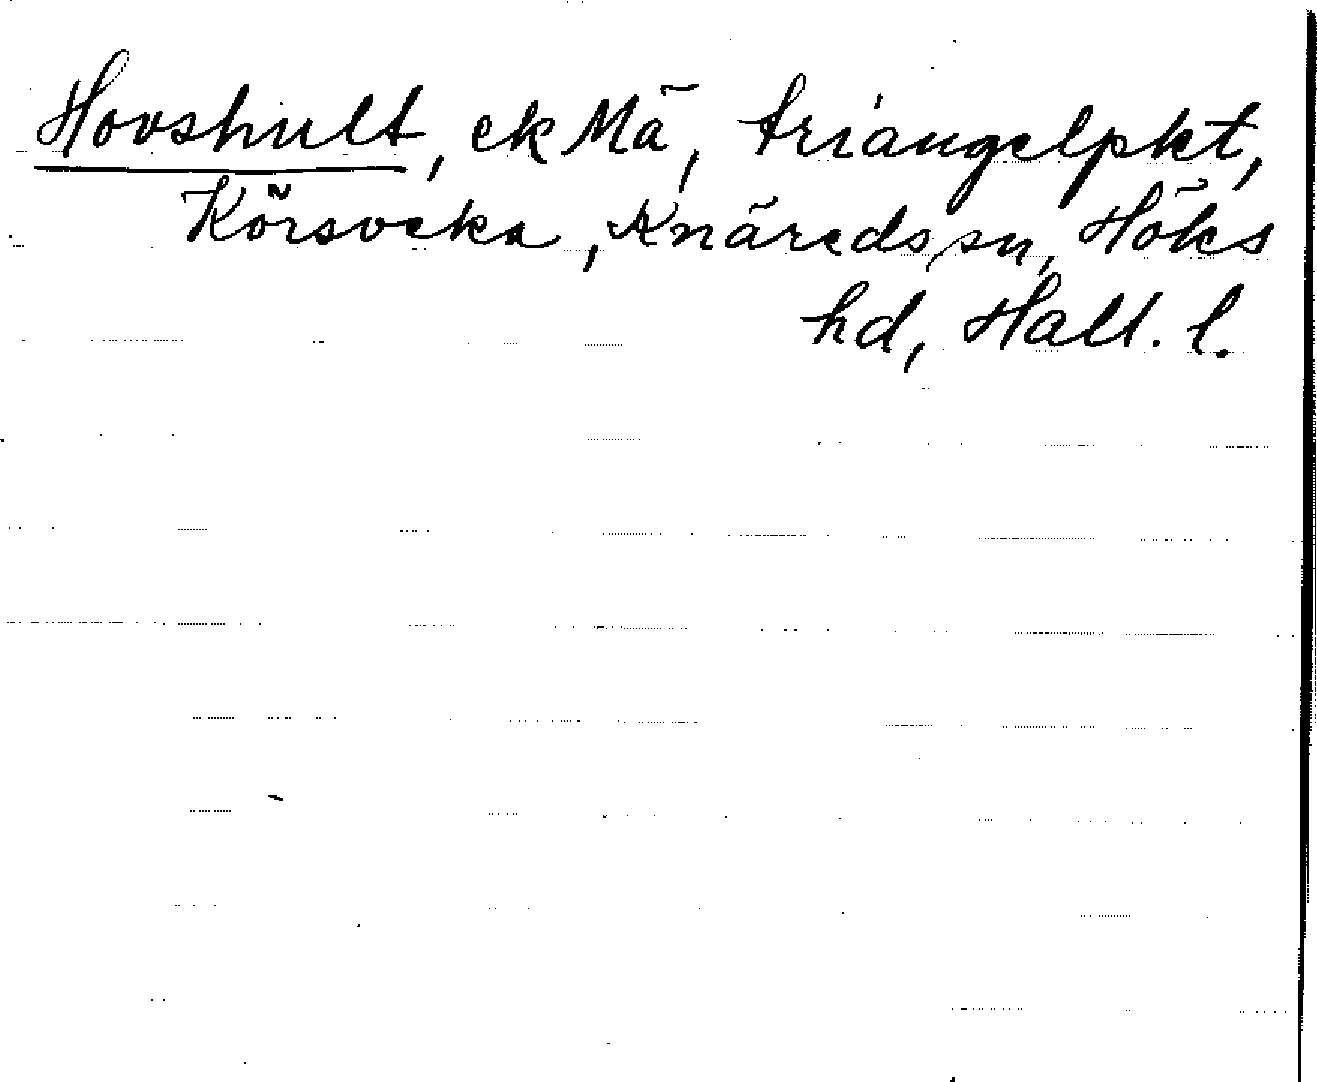 Hovshult, ek Mä, triangelpkt,
Körsveka, Knäreds sn, Höks
hd, Hall. l.